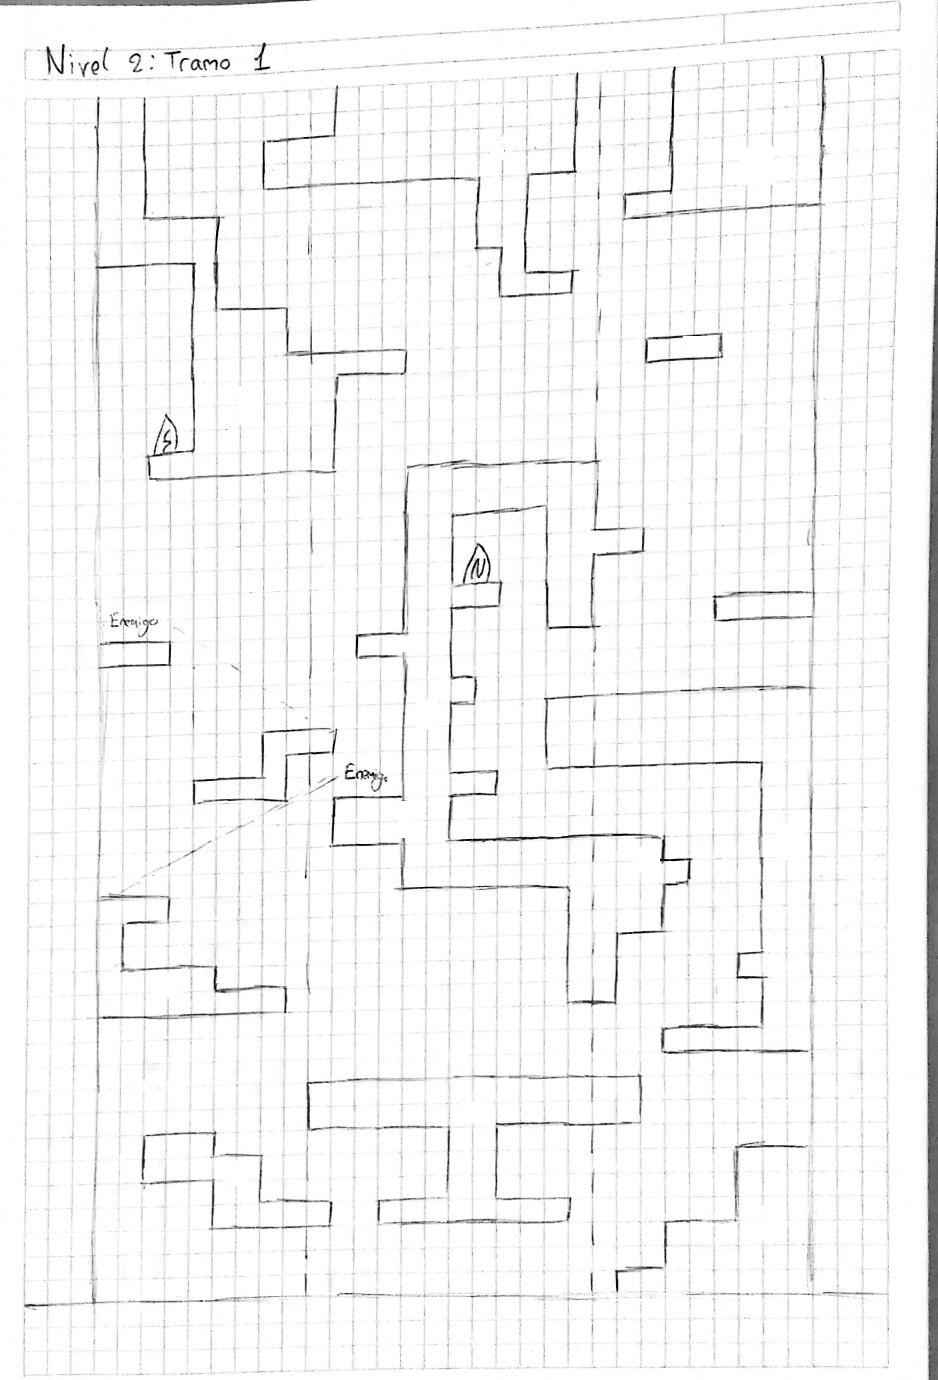 Nivel 2: Tramo 1
S
N
Enemigo
Enemigo